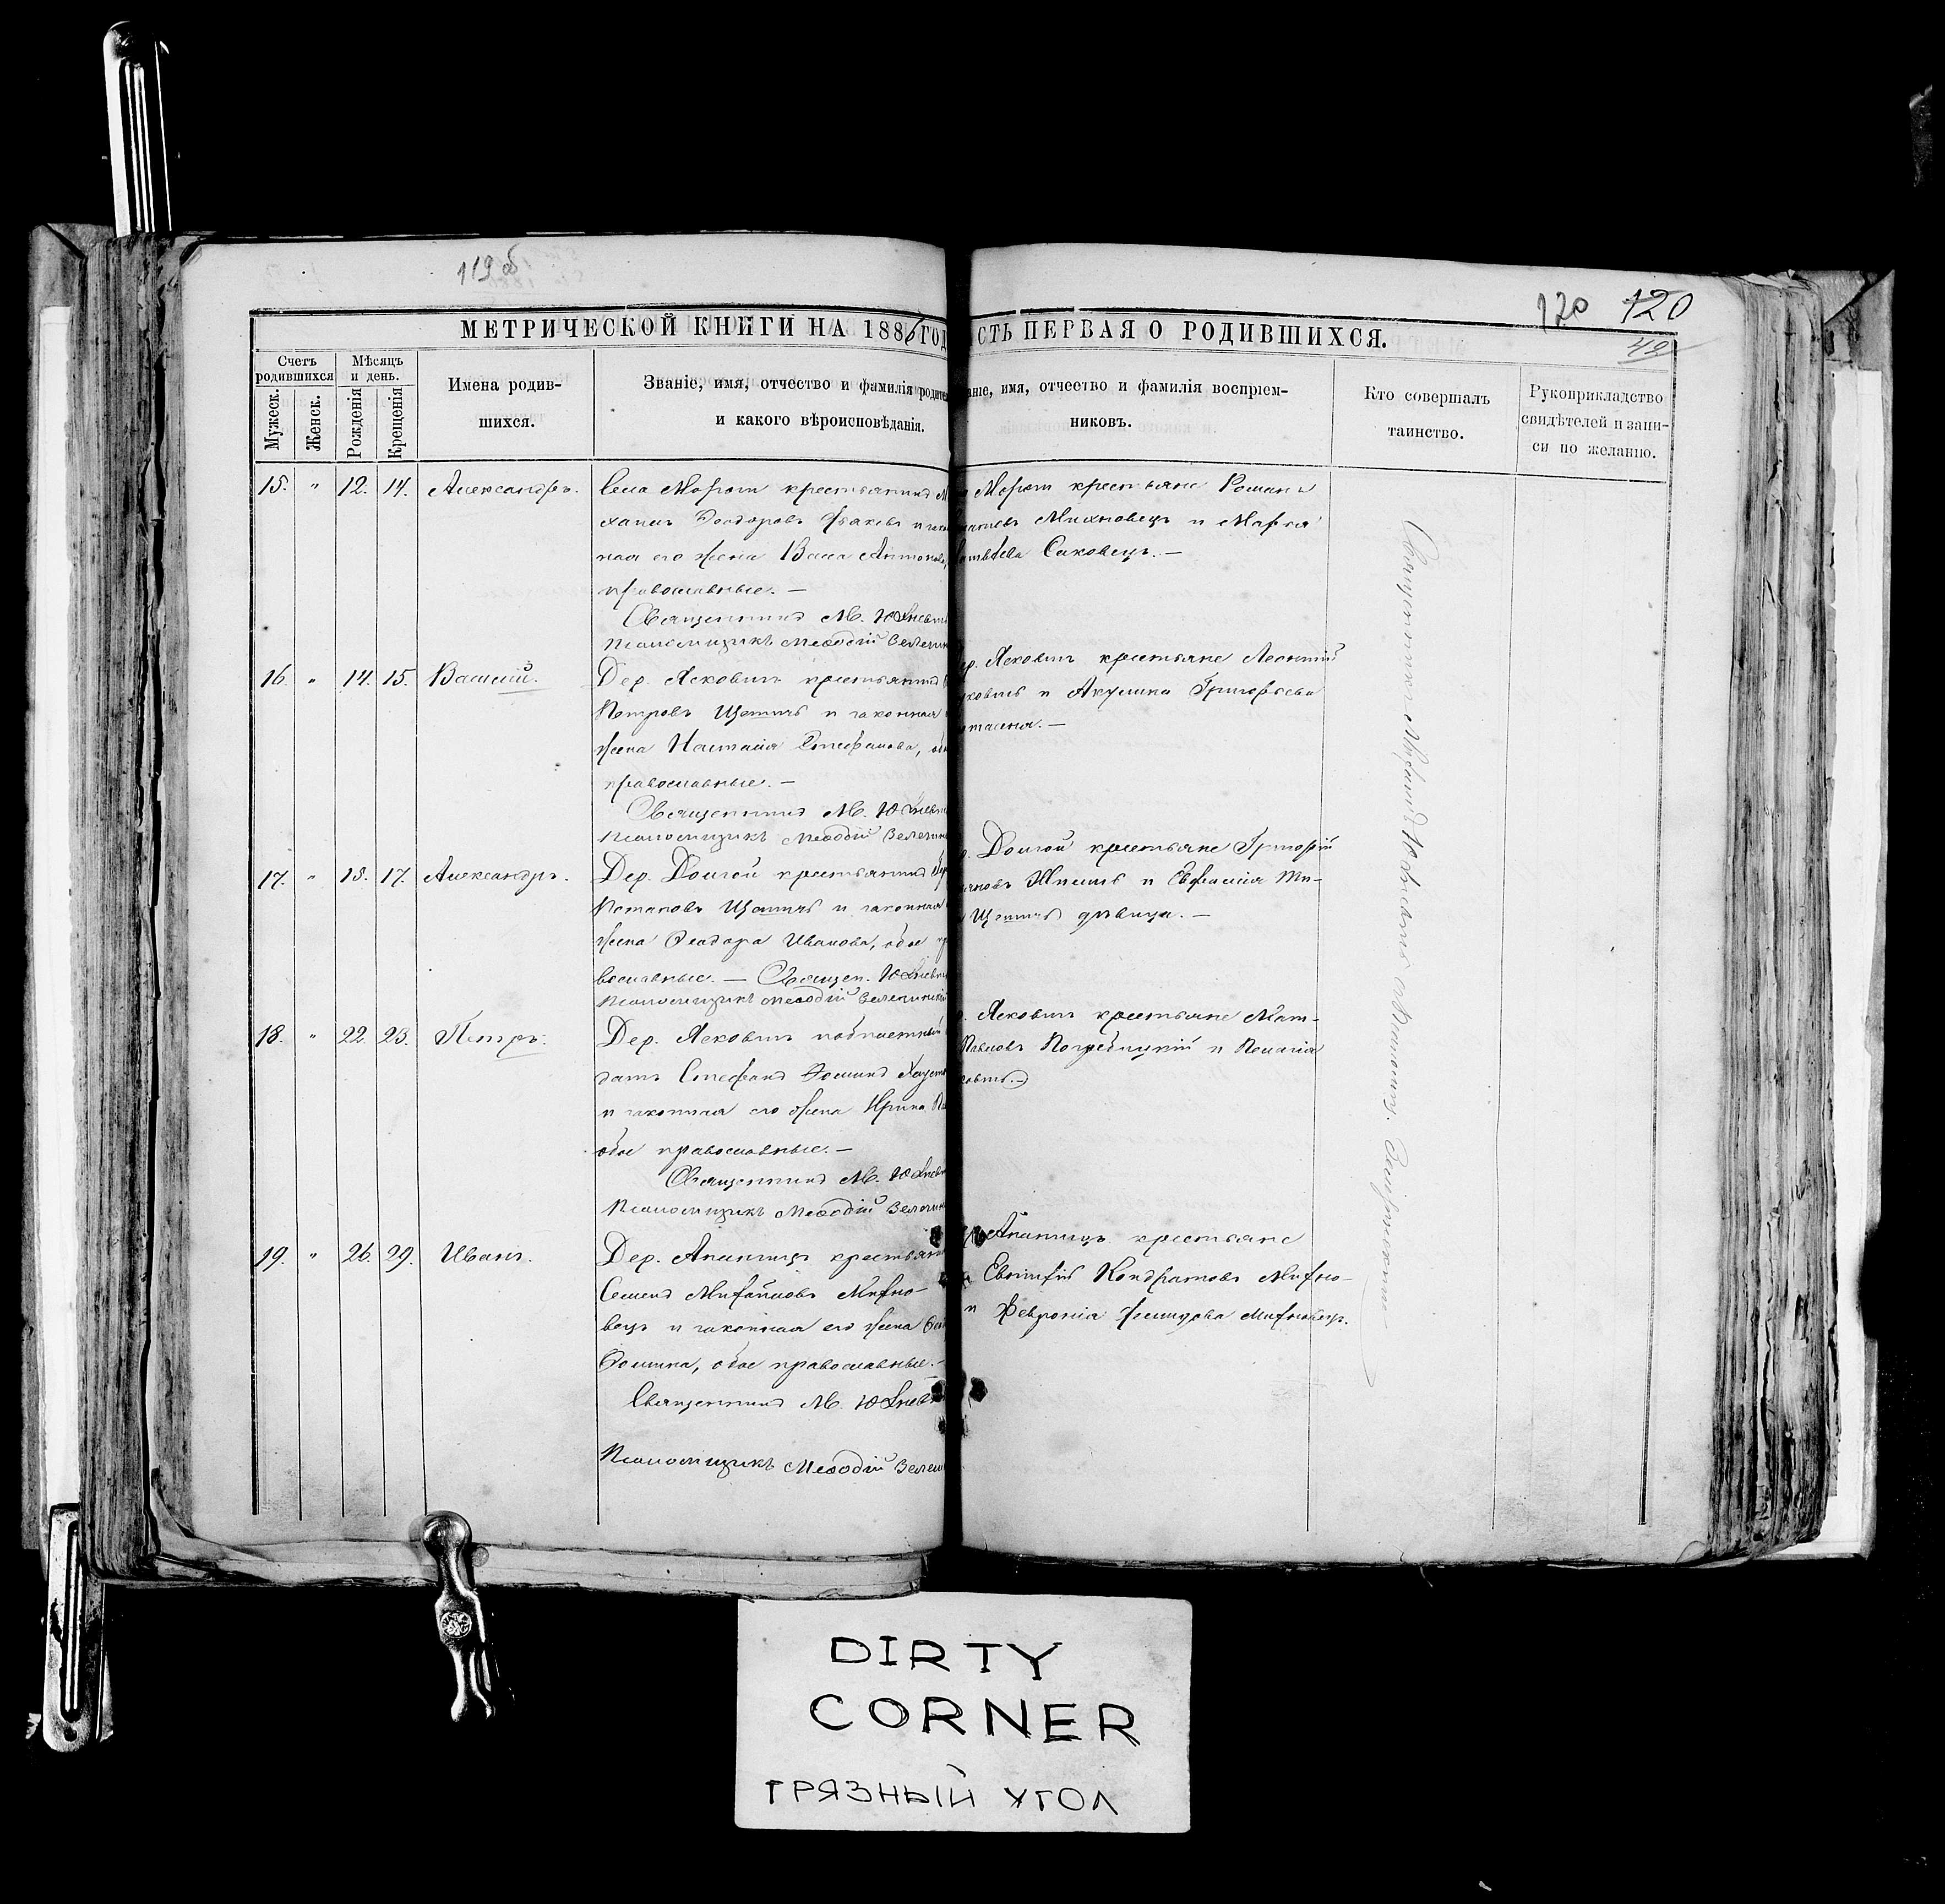 119 об
120 120
42
МЕТРИЧЕСКОЙ КНИГИ НА 1886 ГОД
СТЬ ПЕРВАЯ О РОДИВШИХСЯ.
Счетъ родившихся
Мужеск.
Женск.
Мѣсяцъ и день.
Рожденія
Крещенія
Имена родив-
шихся.
Званіе, имя, отчество и фамилія родите
и какого вѣроисповѣданія.
аніе, имя, отчество и фамилія воспріем-
никовъ.
Кто совершалъ
таинство.
Рукоприкладство
свидѣтелей и запи-
си по желанію.
15. " 12. 14. Александръ.
Села Мороги крестьянинъ М
хаилъ Ѳеодоровъ и зако
ная его жена Васса Антонова,
православные. —
Священникъ М. Юхневи
Псаломщикъ Меѳодій Зелени
Мороги крестьяне Романъ
Михновецъ и Марѳа
Саковецъ. —
16. " 14. 15. Василій.
Дер. Ясковичъ крестьянинъ
Петровъ Щетичъ и законная
жена Настасія Стефанова, об
православные. —
Священникъ М. Юхневи
Псаломщикъ Меѳодій Зелени
р. Ясковичъ крестьяне Леонтій
ковичъ и Акулина Григорьева
17. " 15. 17. Александръ.
Дер. Долгой крестьянинъ
Потаповъ Щетичъ и законная
жена Ѳеодора Иванова, обое п
вославные. — Священ. Юхневи
Псаломщикъ Меѳодій Зеленинскій
Долгой крестьяне Григорій
и Евфимія Ти-
Щетичъ дѣвица. —
18. " 22. 23. Петръ.
Дер. Ясковичъ
датъ Стефанъ Ѳоминъ
и законная его жена Ирина Па
обое православные. —
Священникъ М. Юхнев
Псаломщикъ Меѳодій Зелени
Ясковичъ крестьяне Мат-
Павловъ Погребицкій и Пелагія
ковичъ. —
19. " 26. 29. Иванъ.
Дер. Ананчицъ крестьян
Семенъ Михайловъ Михно-
вецъ и законная его жена
Ѳомина, обое православные. —
Священникъ М. Юхнев
Псаломщикъ Меѳодій Зелени
Ананчицъ крестьяне
Евтихій Кондратовъ Михно-
и Февронія Михновецъ.
Священникъ Юхневичъ съ Псаломщ. Зеленинскимъ
DIRTY
CORNER
ГРЯЗНЫЙ УГОЛ